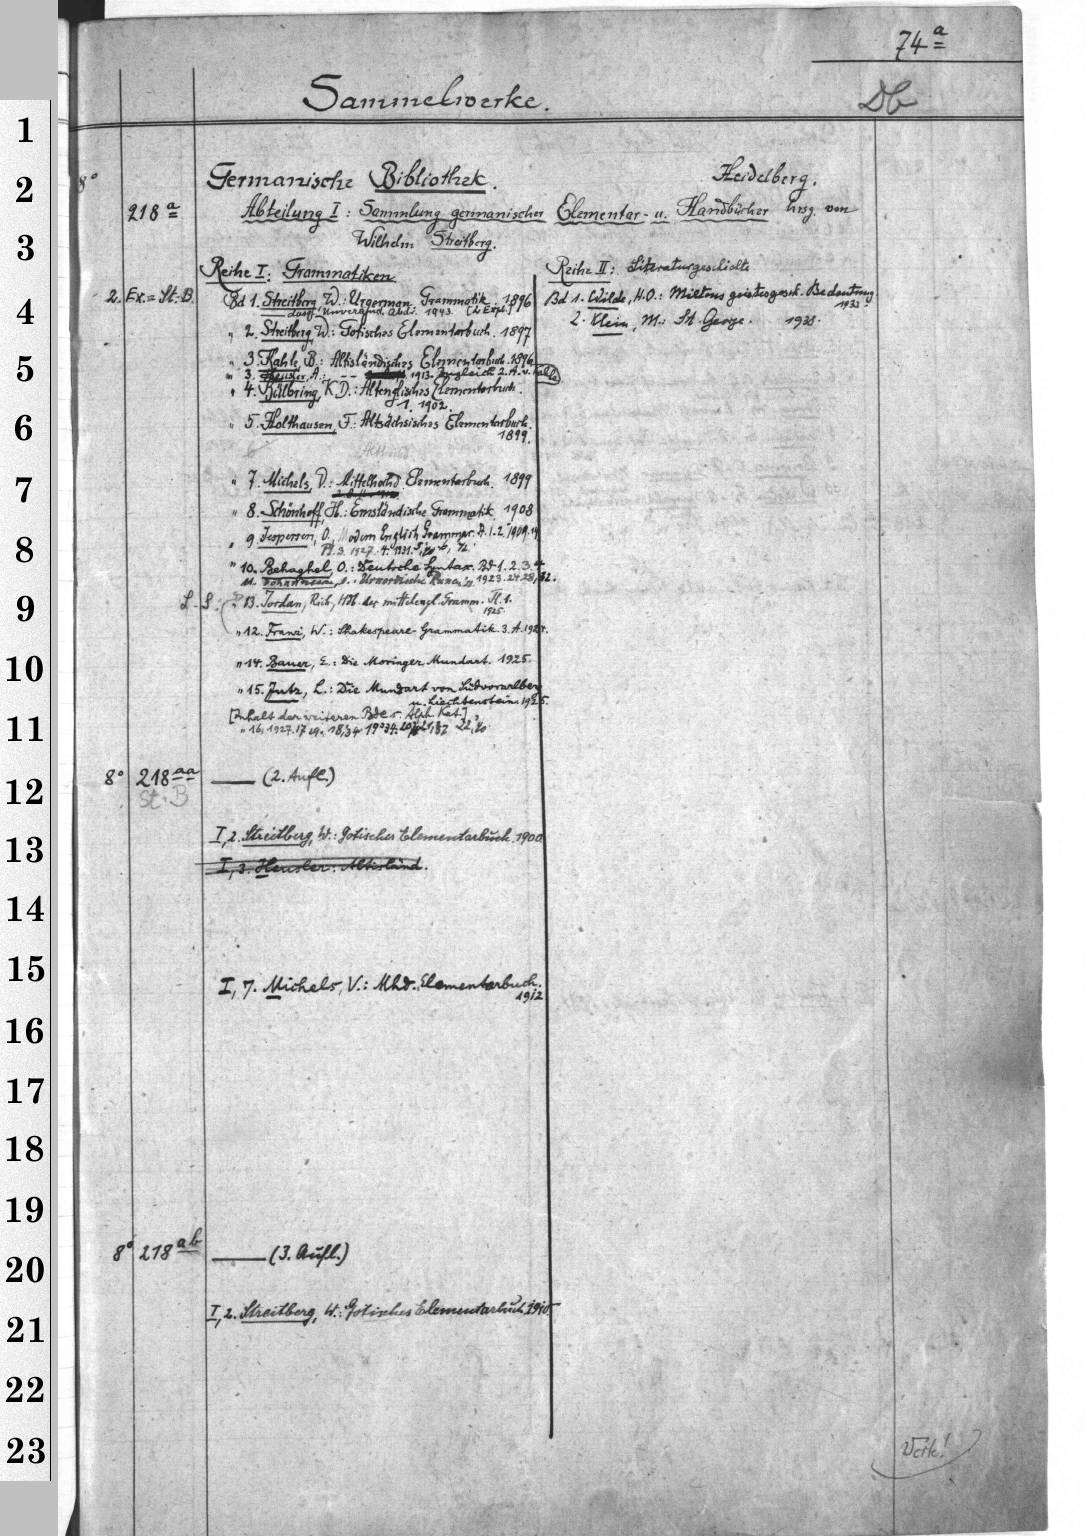 74a
Sammelwerke.
Db
1
2
3
4
5
6
7
8
9
10
11
12
13
14
15
16
17
18
19
20
21
22
23
8°
Germanische Bibliothek. Heidelberg.
218a Abteilung I: Sammlung germanischer Elementar- u. Handbücher hrsg. von
Wilhelm Streitberg.
Reihe I: Grammatiken
2. Ex. = St. B. Bd 1. Streitberg, W.: Urgerman. Grammatik 1896
dass. Unveränd. Abdr. 1943. [2 Expl.]
" 2. Streitberg, W.: Gotisches Elementarbuch. 1897
" 3. Kahle, B.: Altisländisches Elementarbuch. 1896
" 3. Heusler, A.: - - - 1913. Zugleich 2. A. v. Kahle
" 4. Bülbring, K. D.: Altenglisches Elementarbuch.
1. 1902.
" 5. Holthausen, F.: Altsächsisches Elementarbuch.
1899.
6
" 7. Michels, V.: Mittelhochd. Elementarbuch. 1899
" 8. Schönhoff, H.: Emsländische Grammatik 1908
" 9. Jespersen, O.: Modern English Grammar. P. 1. 2. 1909. 14
Pt. 3. 1927. 4. 1931.
" 10. Behaghel, O.: Deutsche Syntax. Bd 1. 2. 3. 4
11. Johannesson, A.: Urnordische Runen. 1923. 24. 28, 32.
L. S. " 13. Jordan, Rich., Hdb. der mittelengl. Gramm. Tl. 1.
1925.
" 12. Franz, W.: Shakespeare-Grammatik. 3. A. 1924.
" 14. Bauer, E.: Die Moringer Mundart. 1925.
" 15. Jutz, L.: Die Mundart von Südvorarlberg
u. Liechtenstein. 1925.
[Inhalt der weiteren Bde s. Alph. Kat.]
" 16, 1927. 17 29. 18, 34
Reihe II: Literaturgeschichte
Bd 1. Wilde, H. O.: Miltons geistesgesch. Bedeutung
1933.
2. Klein, M.: St. George. 1938.
8° 218aa —— (2. Aufl.)
St. B
I, 2. Streitberg, W.: Gotisches Elementarbuch. 1900
I, 3. Heusler: Altisländ.
I, 7. Michels, V.: Mhd. Elementarbuch.
1912
8° 218ab —— (3. Aufl.)
I, 2. Streitberg, W.: Gotisches Elementarbuch. 1910